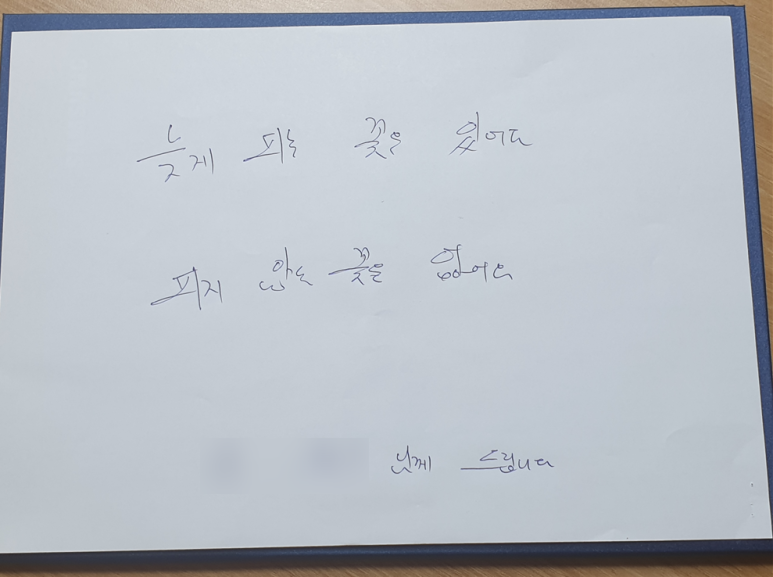 늦게 피는 꽃은 있어도
피지 않는 꽃은 없어요
님께 드립니다